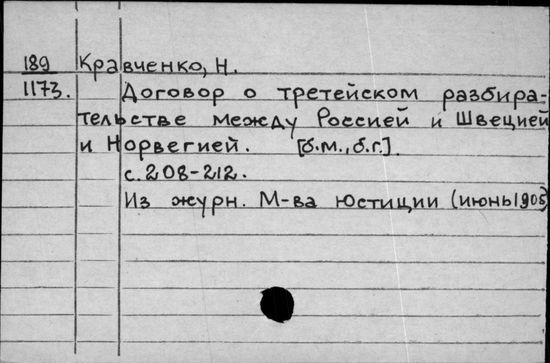 189 Кравченко, Н.
1173. Договор о третейском разбира-
тельстве между Россией и Швецией
и Норвегией. [б.м., б.г.].
с. 208-212.
Из журн. М-ва юстиции (июнь 1905)